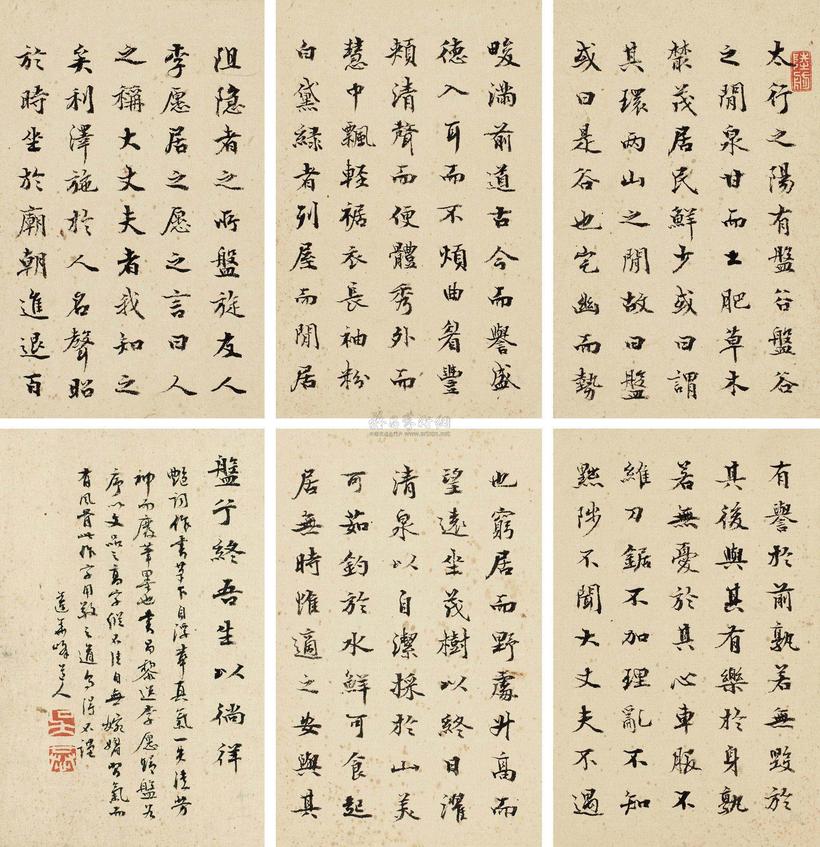 太行之陽有盤谷盤谷
之間泉甘而土肥草木
藂茂居民鮮少或曰謂
其環兩山之間故曰盤
或曰是谷也宅幽而勢
阻隱者之所盤旋友人
李愿居之愿之言曰人
之稱大丈夫者我知之
矣利澤施於人名聲昭
於時坐於廟朝進退百
畯滿前道古今而譽盛
德入耳而不煩曲眉豐
頰清聲而便體秀外而
慧中飄輕裾衣長袖粉
白黛綠者列屋而閒居
也窮居而野處升高而
望遠坐茂樹以終日濯
清泉以自潔採於山美
可茹釣於水鮮可食起
居無時惟適之安與其
有譽於前孰若無毀於
其後與其有樂於身孰
若無憂於其心車服不
維刀鋸不加理亂不知
黜陟不聞大丈夫不遇
盤兮終吾生以徜徉
艷詞作書筆下自浮率真氣一失徒勞
神而廢筆墨也書昌黎送李愿歸盤谷
序以文品之高字縱不佳自無婉媚習氣而
有風骨此作字用敬之道烏得不謹
蓮華峰道人